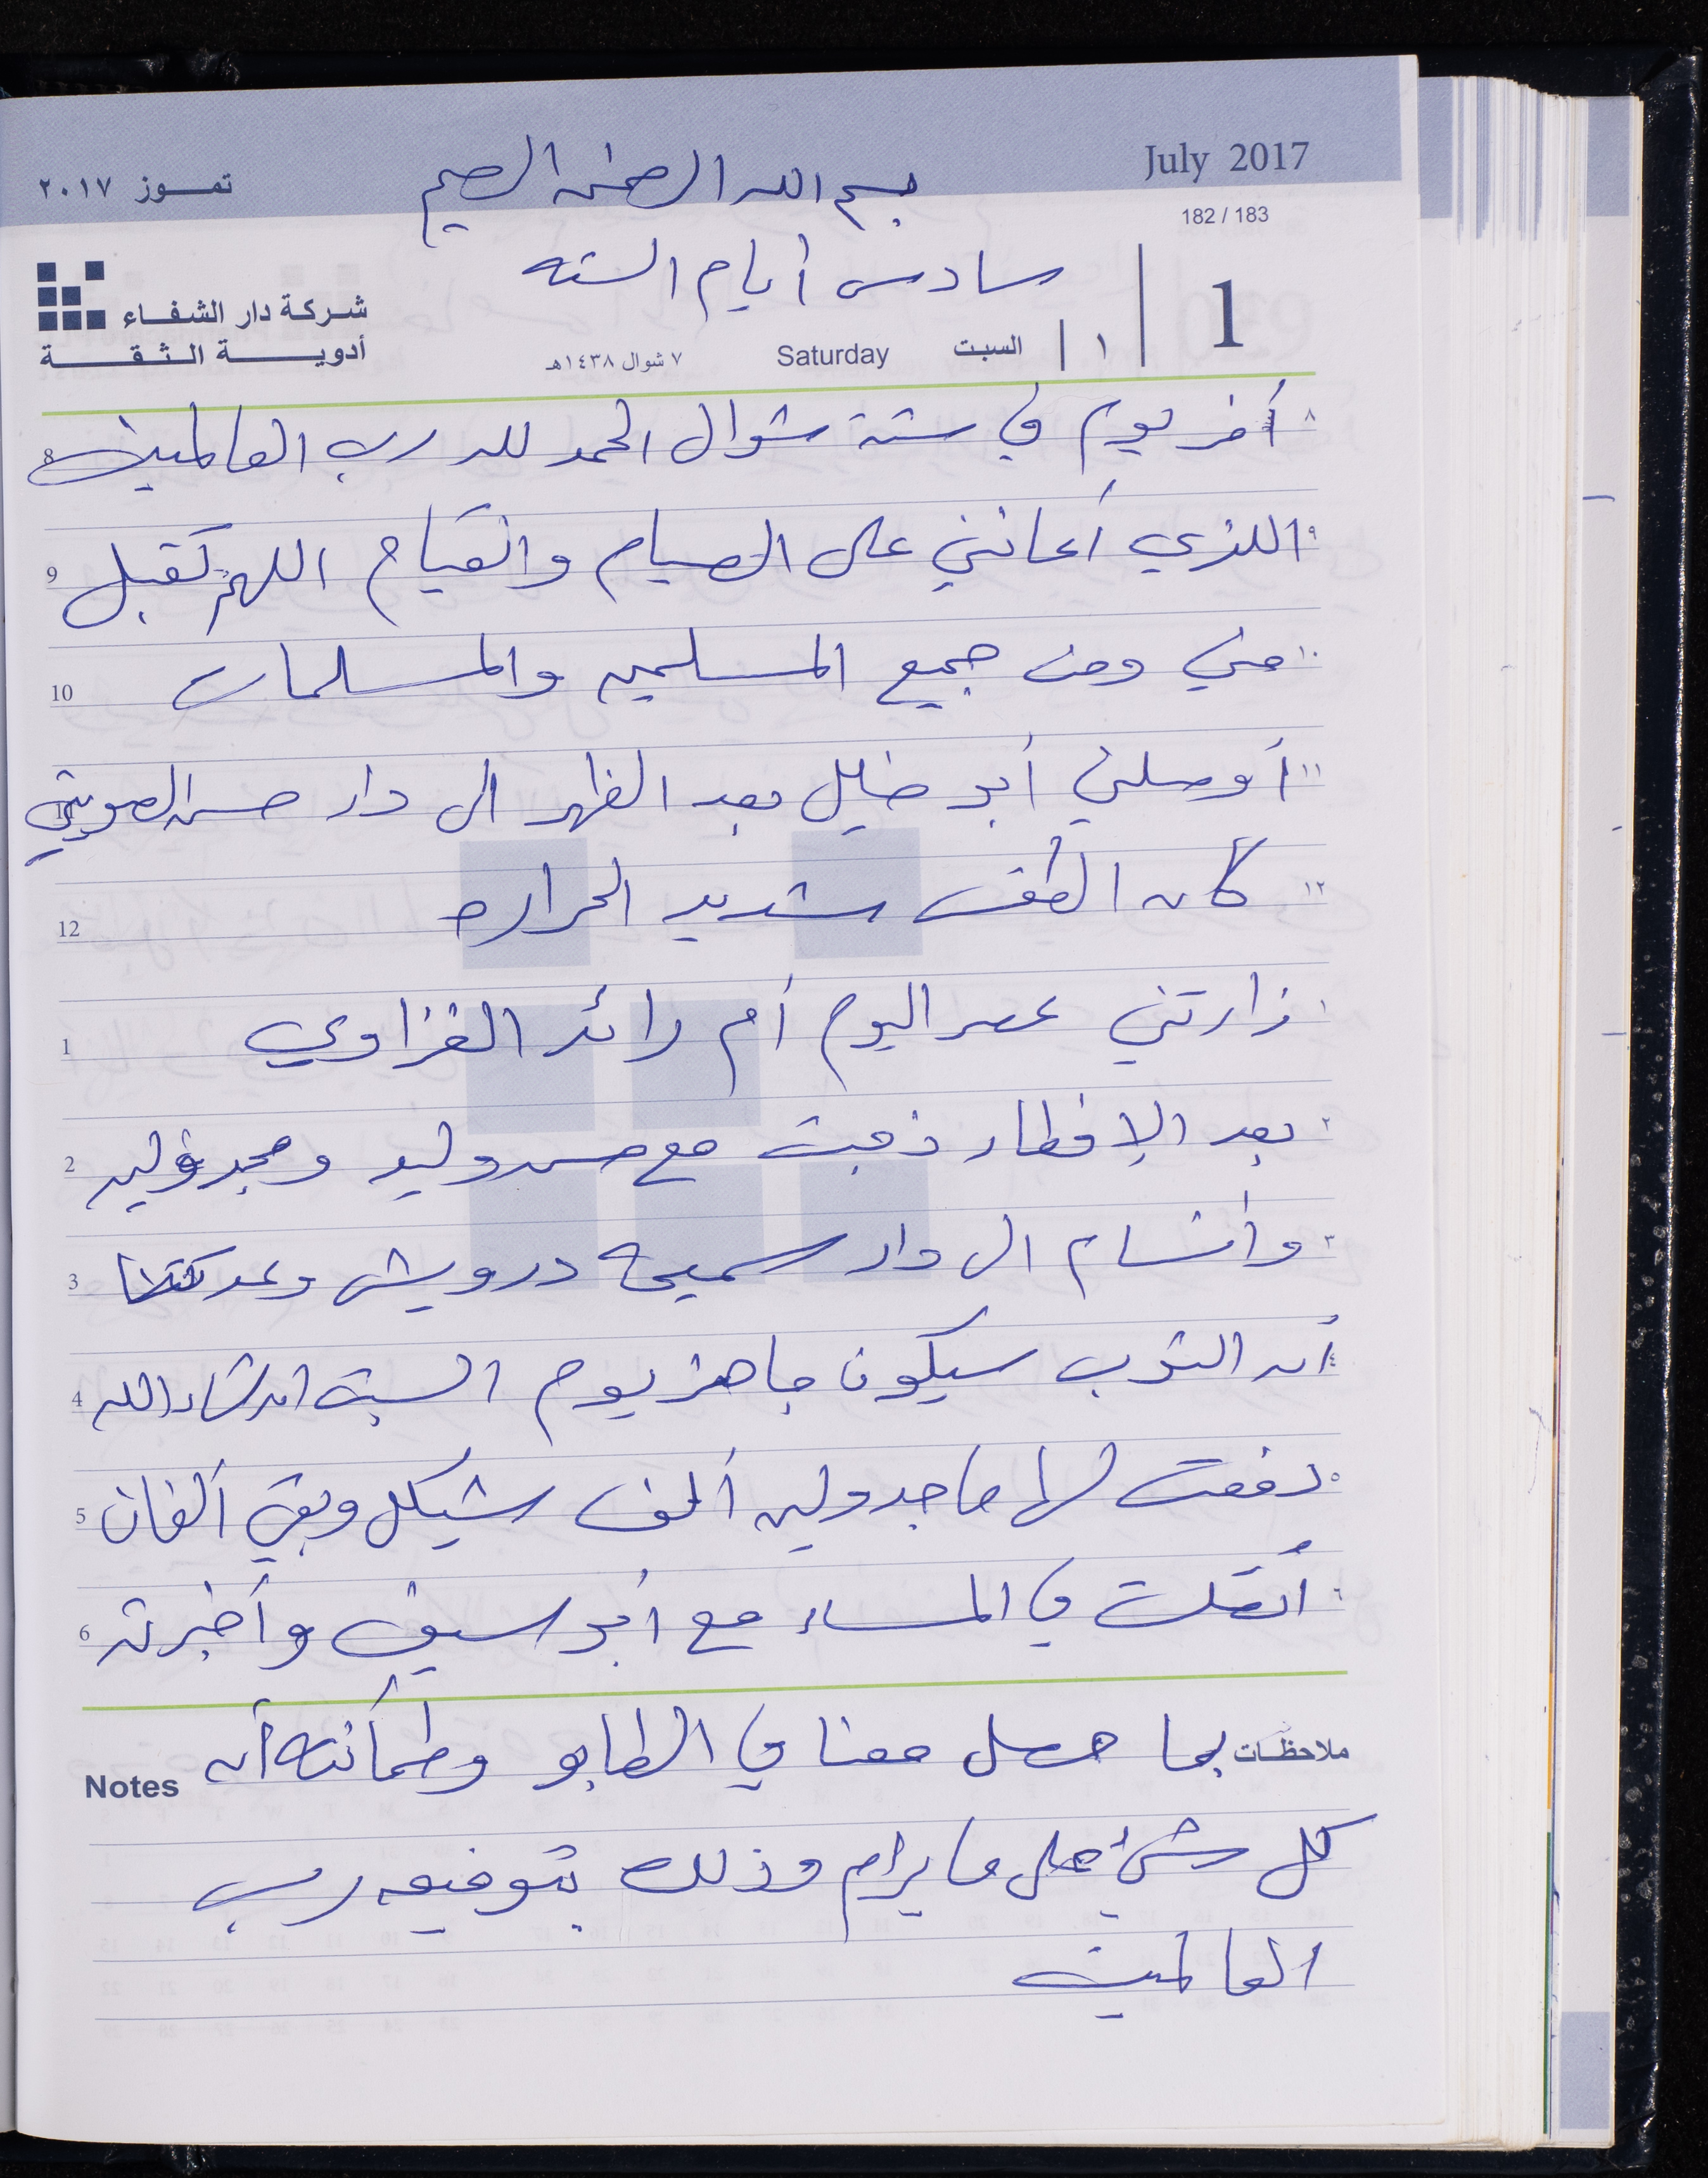 July 2017
بسم الله الرحمن الرحيم
تمـــوز ٢٠١٧
182 / 183
سادس أيام السته
1
١
السبت
Saturday
٧ شوال ١٤٣٨هـ
شـركـة دار الشفـــاء
أدويـــــة الـثـقـــة
٨ أخر يوم في ستة شوال الحمد لله رب العالمين 8
٩ اللذي أعانني على الصيام والقيام اللهم تقبل 9
١٠ مني ومن جميع المسلمين والمسلمات 10
١١ أوصلني أبو خليل بعد الظهر الى دار حسن
١٢ كان الطقس شديد الحراره 12
١ زارتني عصر اليوم أم رائد الغزاوي 1
٢ بعد الإفطار ذهبت مع حسن وليد ومجد وليد 2
٣ الى دار سميحه درويش 3
٤ أن الثوب سيكون جاهز يوم السبت ان شاء الله 4
٥ دفعت لها ماجدولين ألف شيكل وبقي ألفان 5
٦ أتصلت في المساء مع أبو سيف وأخبرته 6
ملاحظـات بما حصل معنا في الطابو وطمأنته أن Notes
كل شيء على ما يرام وذلك بتوفيق رب
العالمين